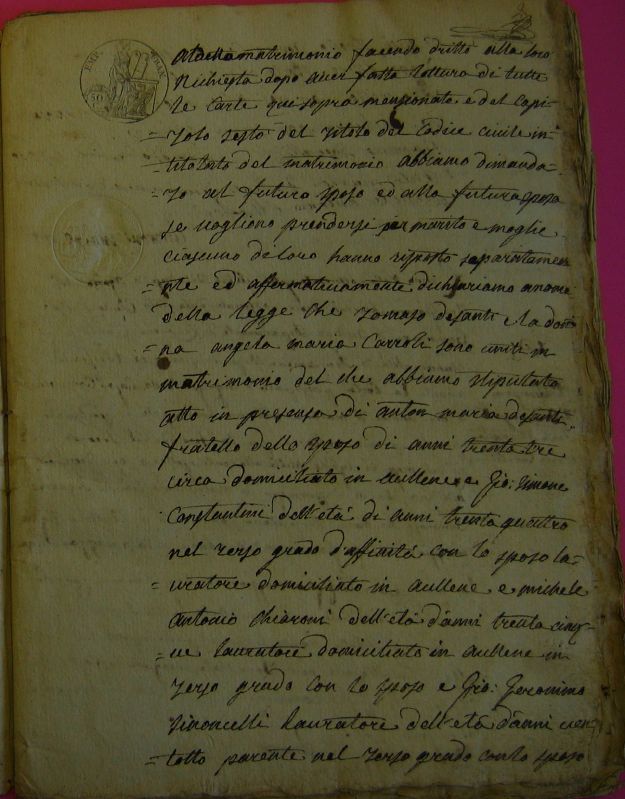 EMP. FRAN.
50
al detto matrimonio facendo dritto alla loro
richiesta dopo aver fatto lettura di tutte
le carte qui sopra menzionate e del capi
= tolo sesto del titolo del Codice civile in
titolato del matrimonio abbiamo dimanda-
= to al futuro sposo ed alla futura sposa
se vogliono prendersi per marito e moglie
ciascuno di loro hanno risposto separatamen
= te ed affermativamente dichiariamo a nome
della legge che Tomaso desanti e la don
= na angela maria Carroli sono uniti in
matrimonio del che abbiamo stipulato
atto in presenza di anton maria desanti
fratello dello sposo di anni trenta tre
circa domiciliato in aullene e Gio: Simone
Constantini dell'età di anni trenta quattro
nel terzo grado d'affinità con lo sposo la-
= uratore domiciliato in aullene e michele
Antonio Chiaroni dell'età d'anni trenta cinq-
= ue lauratore domiciliato in aullene in
terzo grado con lo sposo e Gio: Geronimo
Simoncelli lauratore dell'età d'anni ven
= totto parente nel terzo grado con lo sposo